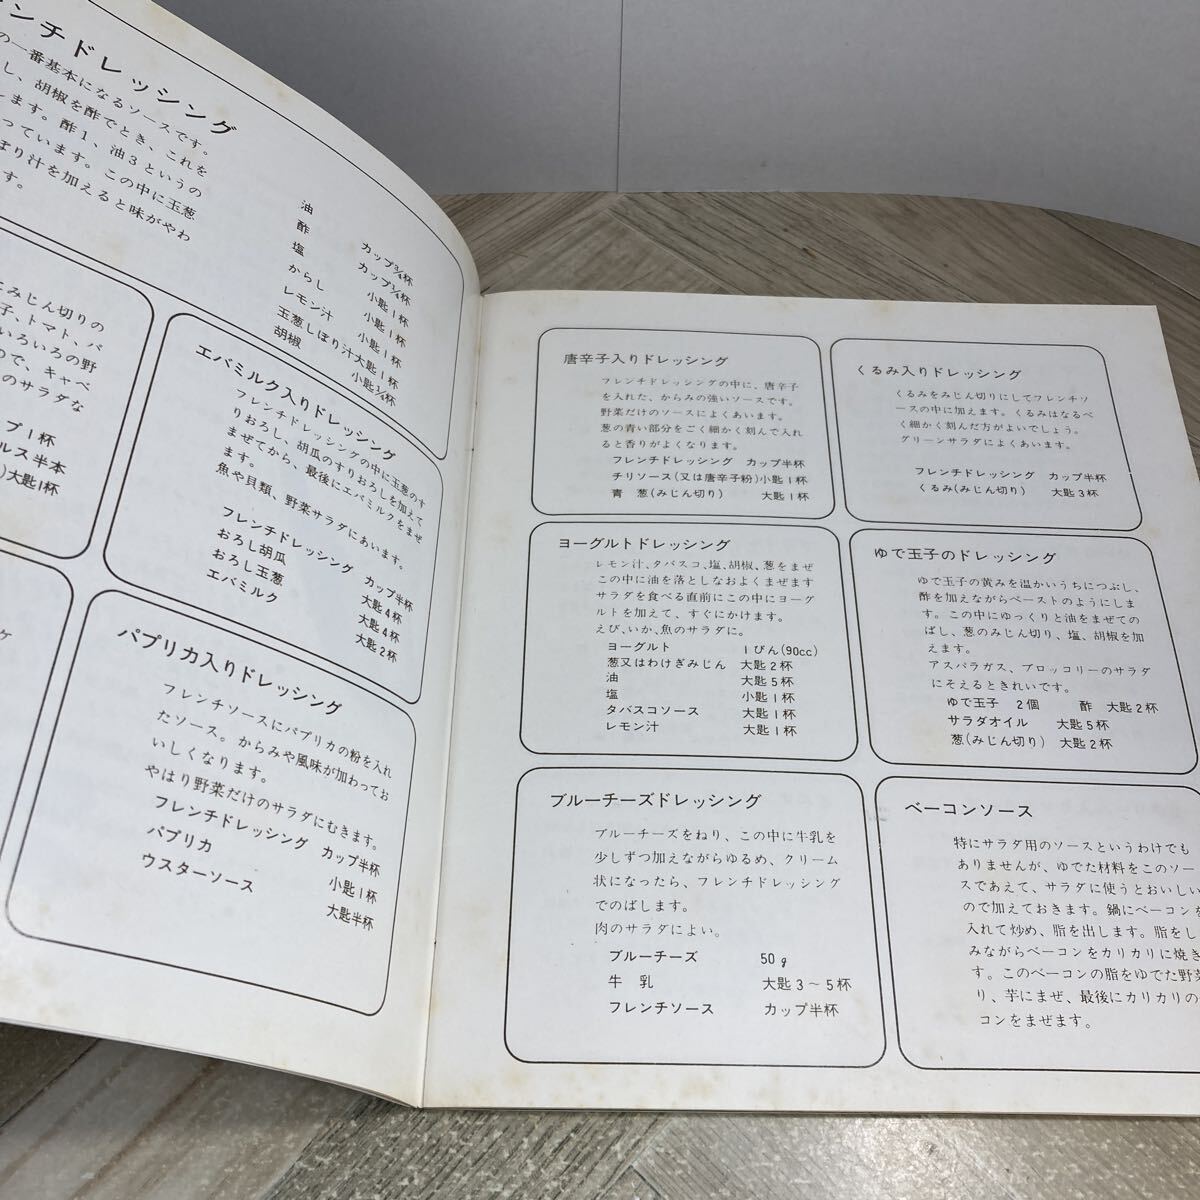 ンチドレッシング
の一番基本になるソースです。
し、胡椒を酢でとき、これを
します。酢1、油3というの
っています。この中に玉葱
ぼり汁を加えると味がやわ
す。
油 カップ¾杯
酢 カップ¼杯
塩 小匙1杯
からし 小匙1杯
レモン汁 小匙1杯
玉葱しぼり汁 大匙1杯
胡椒 小匙¼杯
みじん切りの
子、トマト、パ
いろいろの野
ので、キャベ
のサラダな
プ1杯
ルス半本
)大匙1杯
エバミルク入りドレッシング
フレンチドレッシングの中に玉葱のす
りおろし、胡瓜のすりおろしを加えて
まぜてから、最後にエバミルクをまぜ
ます。
魚や貝類、野菜サラダにあいます。
フレンチドレッシング カップ半杯
おろし胡瓜 大匙4杯
おろし玉葱 大匙4杯
エバミルク 大匙2杯
ケ
パプリカ入りドレッシング
フレンチソースにパプリカの粉を入れ
たソース。からみや風味が加わってお
いしくなります。
やはり野菜だけのサラダにむきます。
フレンチドレッシング カップ半杯
パプリカ 小匙1杯
ウスターソース 大匙半杯
唐辛子入りドレッシング
フレンチドレッシングの中に、唐辛子
を入れた、からみの強いソースです。
野菜だけのソースによくあいます。
葱の青い部分をごく細かく刻んで入れ
ると香りがよくなります。
フレンチドレッシング カップ半杯
チリソース(又は唐辛子粉)小匙1杯
青 葱(みじん切り) 大匙1杯
くるみ入りドレッシング
くるみをみじん切りにしてフレンチソ
ースの中に加えます。くるみはなるべ
く細かく刻んだ方がよいでしょう。
グリーンサラダによくあいます。
フレンチドレッシング カップ半杯
くるみ(みじん切り) 大匙3杯
ヨーグルトドレッシング
レモン汁、タバスコ、塩、胡椒、葱をまぜ
この中に油を落としなおよくまぜます
サラダを食べる直前にこの中にヨーグ
ルトを加えて、すぐにかけます。
えび、いか、魚のサラダに。
ヨーグルト 1びん(90cc)
葱又はわけぎみじん 大匙2杯
油 大匙5杯
塩 小匙1杯
タバスコソース 大匙1杯
レモン汁 大匙1杯
ゆで玉子のドレッシング
ゆで玉子の黄みを温かいうちにつぶし、
酢を加えながらペーストのようにしま
す。この中にゆっくりと油をまぜての
ばし、葱のみじん切り、塩、胡椒を加
えます。
アスパラガス、ブロッコリーのサラダ
にそえるときれいです。
ゆで玉子 2個 酢 大匙2杯
サラダオイル 大匙5杯
葱(みじん切り) 大匙2杯
ブルーチーズドレッシング
ブルーチーズをねり、この中に牛乳を
少しずつ加えながらゆるめ、クリーム
状になったら、フレンチドレッシング
でのばします。
肉のサラダによい。
ブルーチーズ 50g
牛 乳 大匙3〜5杯
フレンチソース カップ半杯
ベーコンソース
特にサラダ用のソースというわけでも
ありませんが、ゆでた材料をこのソー
スであえて、サラダに使うとおいしい
ので加えておきます。鍋にベーコンを
入れて炒め、脂を出します。脂をし
みながらベーコンをカリカリに焼き
す。このベーコンの脂をゆでた野菜
り、芋にまぜ、最後にカリカリの
コンをまぜます。